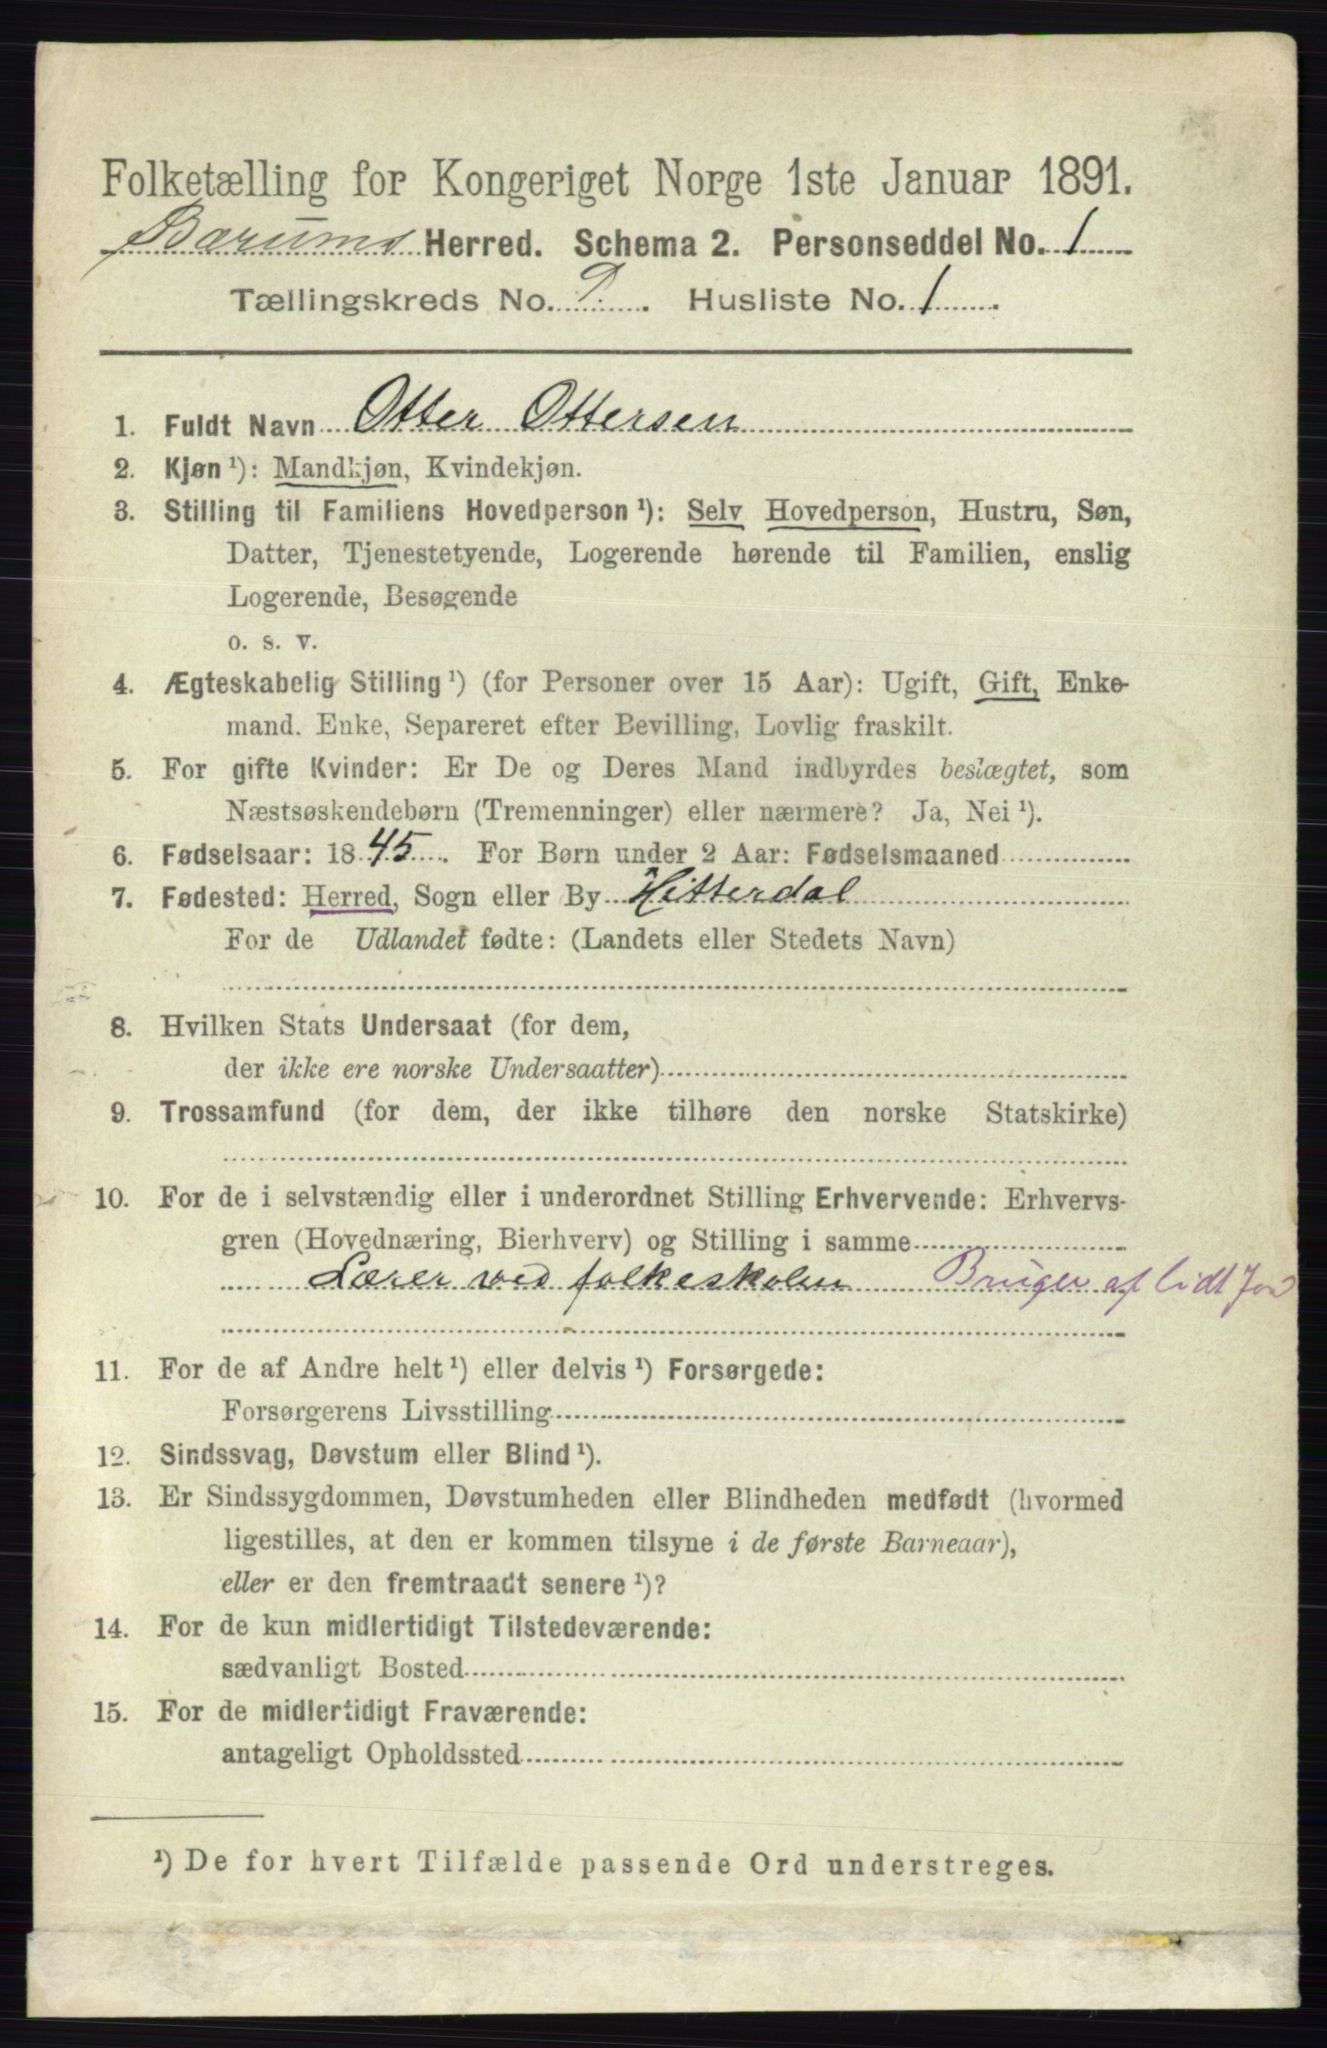 Folketælling for Kongeriget Norge 1ste Januar 1891.
Bærums Herred. Schema 2. Personseddel No. 1
Tællingskreds No. . Husliste No. 1 .
1. Fuldt Navn Otter Ottersen
2. Kjøn ¹): Mandkjøn, Kvindekjøn.
3. Stilling til Familiens Hovedperson ¹): Selv Hovedperson, Hustru, Søn,
Datter, Tjenestetyende, Logerende hørende til Familien, enslig
Logerende, Besøgende
o. s. v.
4. Ægteskabelig Stilling ¹) (for Personer over 15 Aar): Ugift, Gift, Enke-
mand. Enke, Separeret efter Bevilling, Lovlig fraskilt.
5. For gifte Kvinder: Er De og Deres Mand indbyrdes beslægtet, som
Næstsøskendebørn (Tremenninger) eller nærmere? Ja, Nei ¹).
6. Fødselsaar: 1845. For Børn under 2 Aar: Fødselsmaaned
7. Fødested: Herred, Sogn eller By Hitterdal
For de Udlandet fødte: (Landets eller Stedets Navn)
8. Hvilken Stats Undersaat (for dem,
der ikke ere norske Undersaatter)
9. Trossamfund (for dem, der ikke tilhøre den norske Statskirke)
10. For de i selvstændig eller i underordnet Stilling Erhvervende: Erhvervs-
gren (Hovednæring, Bierhverv) og Stilling i samme
Lærer ved folkeskolen Bruger af lidt Jord
11. For de af Andre helt ¹) eller delvis ¹) Forsørgede:
Forsørgerens Livsstilling
12. Sindssvag, Døvstum eller Blind ¹).
13. Er Sindssygdommen, Døvstumheden eller Blindheden medfødt (hvormed
ligestilles, at den er kommen tilsyne i de første Barneaar),
eller er den fremtraadt senere ¹)?
14. For de kun midlertidigt Tilstedeværende:
sædvanligt Bosted
15. For de midlertidigt Fraværende:
antageligt Opholdssted
¹) De for hvert Tilfælde passende Ord understreges.